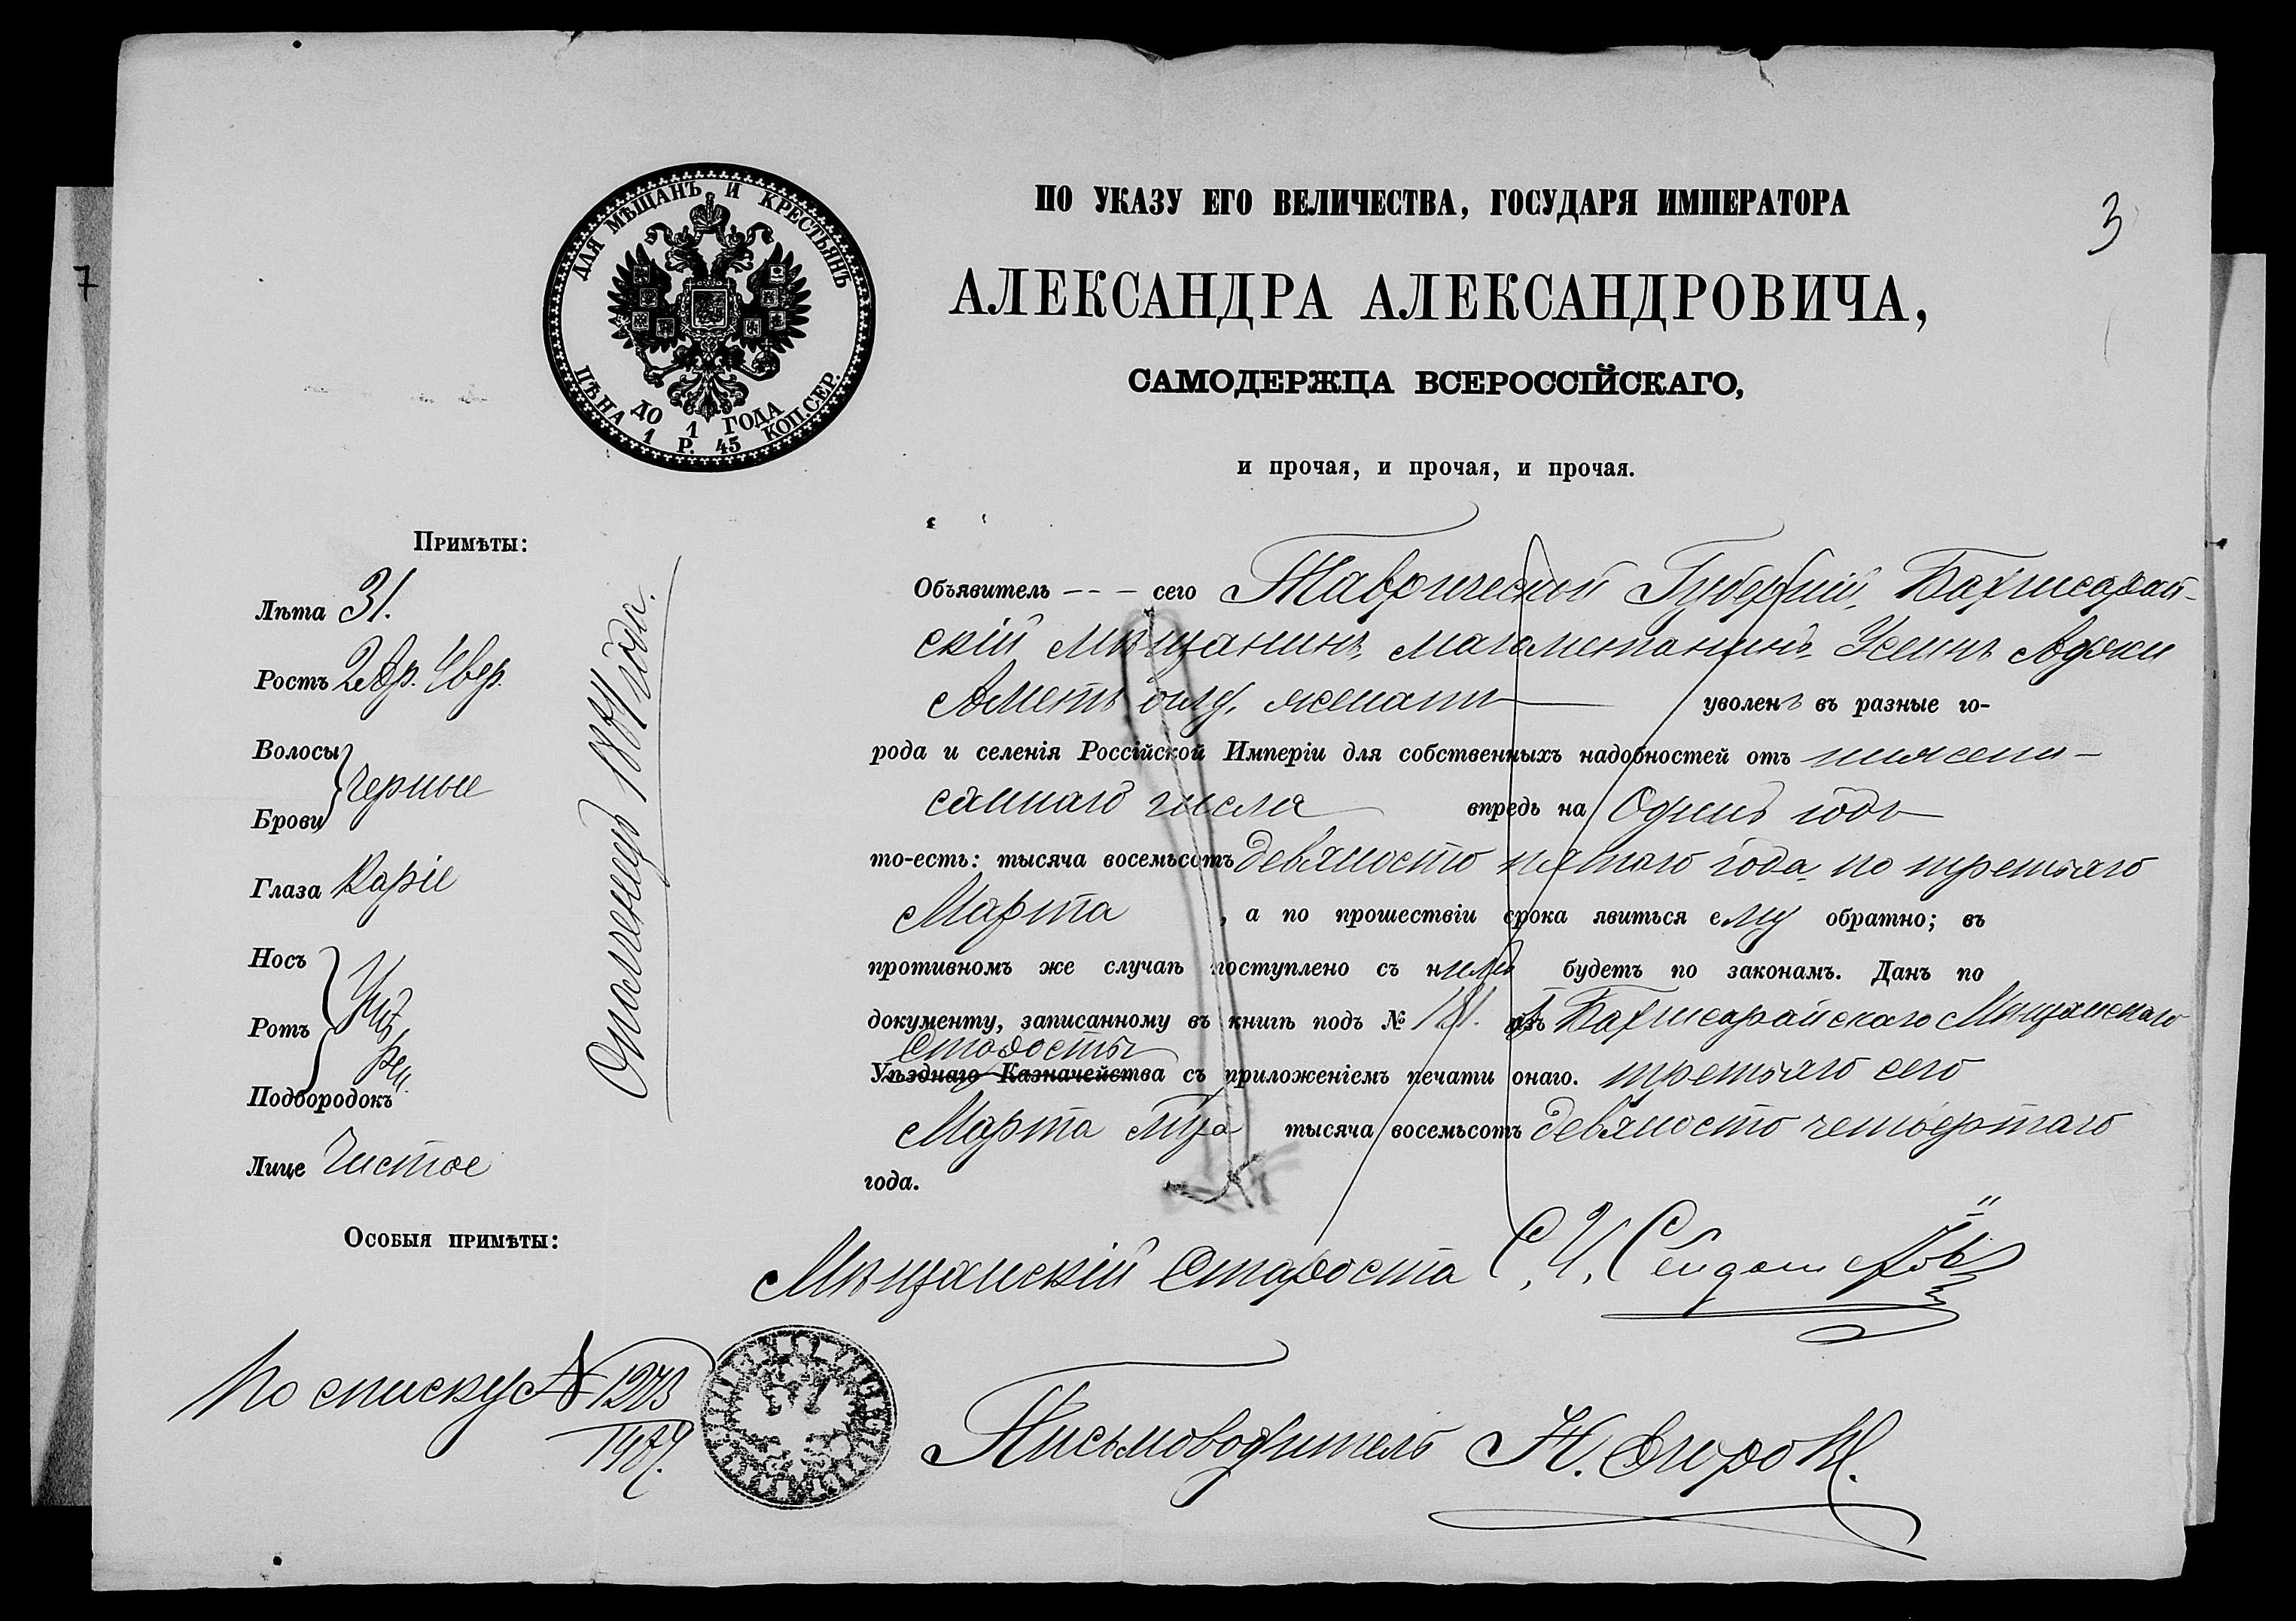 3
7
ДЛЯ МѢЩАНЪ И КРЕСТЬЯНЪ
ДО 1 ГОДА
ЦѢНА 1 Р. 45 КОП. СЕР.
ПО УКАЗУ ЕГО ВЕЛИЧЕСТВА, ГОСУДАРЯ ИМПЕРАТОРА
АЛЕКСАНДРА АЛЕКСАНДРОВИЧА,
САМОДЕРЖЦА ВСЕРОССІЙСКАГО,
и прочая, и прочая, и прочая.
Примѣты:
Лѣта 31.
Ростъ 2 Ар. 4 вер.
Волосы
черные
Брови
Глаза Каріе
Носъ
Ротъ
Подбородокъ
Лице Чистое
Особыя примѣты:
Ополченецъ 1884 года.
Объявитель --- сего Таврической Губерніи, Бахчисарай-
скій мѣщанинъ, магометанинъ Усеинъ Аджи
Аметъ оглу, женатъ уволенъ въ разные го-
рода и селенія Россійской Имперіи для собственныхъ надобностей отъ нижепи-
саннаго числа впредь на Одинъ годъ
то-есть: тысяча восемьсотъ девяносто пятаго года по третьяго
Марта, а по прошествіи срока явиться ему обратно; въ
противномъ же случаѣ поступлено съ нимъ будетъ по законамъ. Данъ по
документу, записанному въ книгѣ подъ № 181. Бахчисарайскаго Мѣщанскаго
Старосты
Уѣзднаго Казначейства съ приложеніемъ печати онаго. третьяго сего
Марта м-ца тысяча восемьсотъ девяносто четвертаго
года.
Мѣщанскій Староста С. И.
По списку №
Письмоводитель Н.